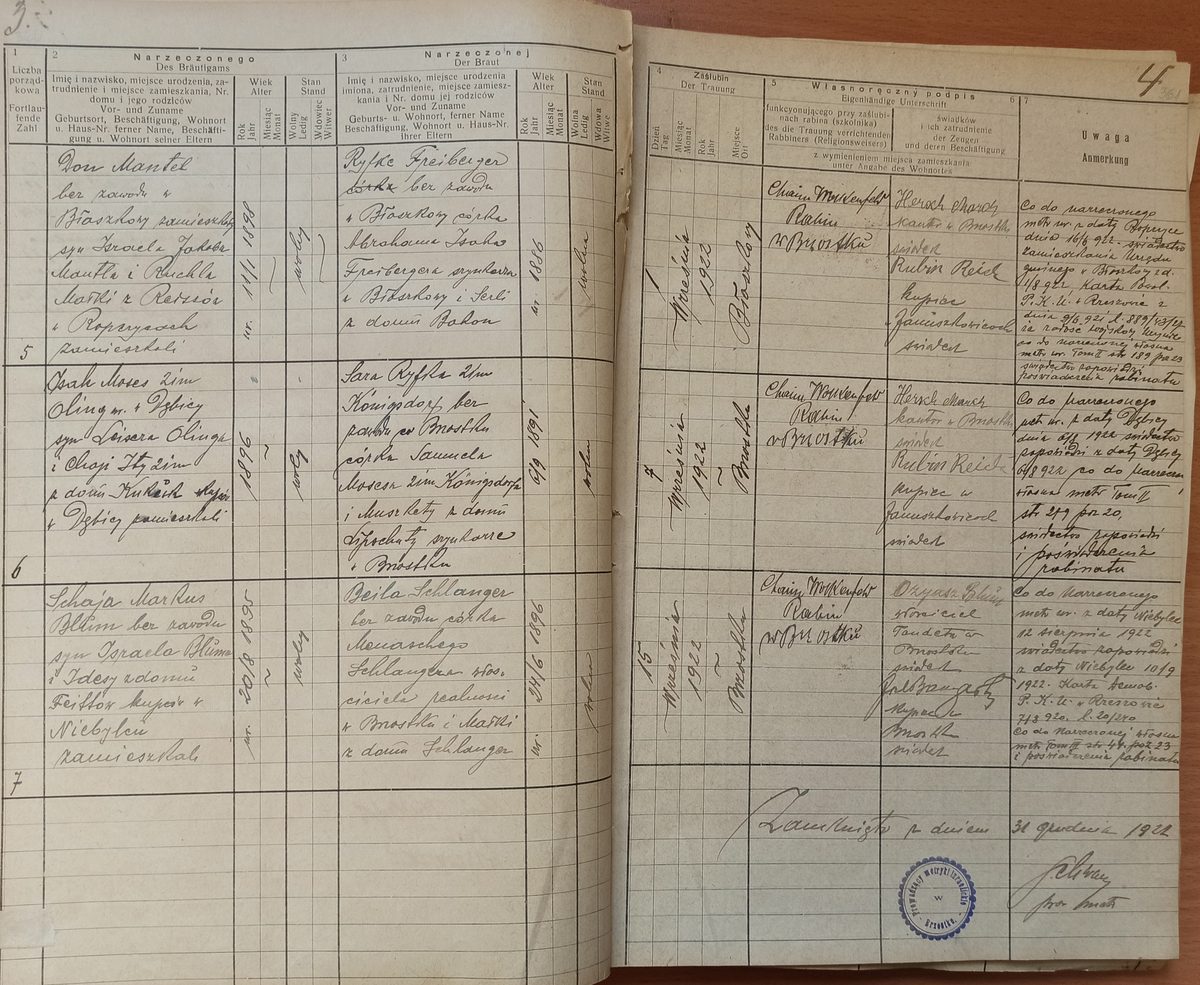 3.
1
Liczba
porząd-
kowa
Fortlau-
fende
Zahl
2
Narzeczonego
Des Bräutigams
Imię i nazwisko, miejsce urodzenia, za-
trudnienie i miejsce zamieszkania, Nr.
domu i jego rodziców
Vor- und Zuname
Geburtsort, Beschäftigung, Wohnort
u. Haus-Nr. ferner Name, Beschäfti-
gung u. Wohnort seiner Eltern
Wiek
Alter
Rok
Jahr
Miesiąc
Monat
Stan
Stand
Wolny
Ledig
Wdowiec
Witwer
3
Narzeczonej
Der Braut
Imię i nazwisko, miejsce urodzenia
imiona, zatrudnienie, miejsce zamiesz-
kania i Nr. domu jej rodziców
Vor- und Zuname
Geburts- u. Wohnort, ferner Name
Beschäftigung, Wohnort u. Haus-Nr.
ihrer Eltern
Wiek
Alter
Rok
Jahr
Miesiąc
Monat
Stan
Stand
Wolna
Ledig
Wdowa
Witwe
5
Don Mantel
bez zawodu w
Błaszkowy zamieszkały
syn Israela Jakoba
Mantla i Ruchla
Małki z
w Ropczycach
zamieszkali
ur. 11/1 1898
wolny
Ryfke Freiberger
córka bez zawodu
w Błaszkowy córka
Abrahama Isaka
Freibergera szynkarza
w Błaszkowy i Serli
z domu Bakon
ur. 1886
wolna
6
Isak Moses 2im
Oling ur. w Dębicy
syn Leisera Olinga
i Chaji Ity 2im
z domu
w Dębicy zamieszkali
1896
wolny
Sara Ryfka 2im
Königsdorf bez
zawodu w Brzostku
córka Samuela
Mosesa 2im Königsdorfa
i z domu
szynkarze
w Brzostku
6/9 1891
wolna
7
Schaja Markus
Blüm bez zawodu
syn Israela Blüma
i Idesy z domu
Feittów kupców w
Niebylcu
zamieszkali
ur. 20/8 1895
wolny
Beila Schlanger
bez zawodu córka
Menaschego
Schlangera właś-
ciciela realności
w Brzostku i Małki
z domu Schlanger
ur. 24/6 1896
wolna
4
Zaślubin
Der Trauung
Dzień
Tag
Miesiąc
Monat
Rok
Jahr
Miejsce
Ort
5
Własnoręczny podpis
Eigenhändige Unterschrift
6
funkcyonującego przy zaślubi-
nach rabina (szkolnika)
des die Trauung verrichtenden
Rabbiners (Religionsweisers)
świadków
i ich zatrudnienie
der Zeugen
und deren Beschäftigung
z wymienieniem miejsca zamieszkania
unter Angabe des Wohnortes
7
Uwaga
Anmerkung
4.
1
Września
1922
Błaszkowy
Chaim
Rabin
w Brzostku
Hersch March
kantor w Brzostku
świadek
Rubin Reich
kupiec
w Januszkowicach
świadek
Co do narzeczonego
metr. ur. z daty Ropczyce
dnia 16/6 922. świadectwo
zamieszkania Urzędu
gminnego w Błaszkowy z d.
1/8 922. karta
P. K. U. w Rzeszowie z
co do narzeczonej własna
metr. ur. Tom II str 189 poz 23
świadectwo zapowiedzi
poświadczenia rabinatu
7
Września
1922
Brzostku
Chaim
Rabin
w Brzostku
Hersch March
kantor w Brzostku
świadek
Rubin Reich
kupiec w
Januszkowicach
świadek
Co do narzeczonego
metr ur. z daty Dębicy
dnia 1922 świadectwo
zapowiedzi z daty Dębicy
922 co do narzeczonej
własna metr Tom II
str 219 poz 20,
świadectwo zapowiedzi
i poświadczenia
rabinatu
15
Września
1922
Brzostku
Chaim
Rabin
w Brzostku
właściciel
w
Brzostku
świadek
kupiec z
Brzostku
świadek
Co do narzeczonego
metr ur. z daty Niebylec
12 sierpnia 1922
świadectwo zapowiedzi
z daty Niebylec 10/9
1922. Karta demob.
P. K. U. w Rzeszowie
7/3 920. l. 20/240
Co do narzeczonej własna
metr Tom II str 44. poz 23
i poświadczenia rabinatu
Zamknięto z dniem 31 grudnia 1922
Prowadzący metryki izraelickie
w
Brzostku.